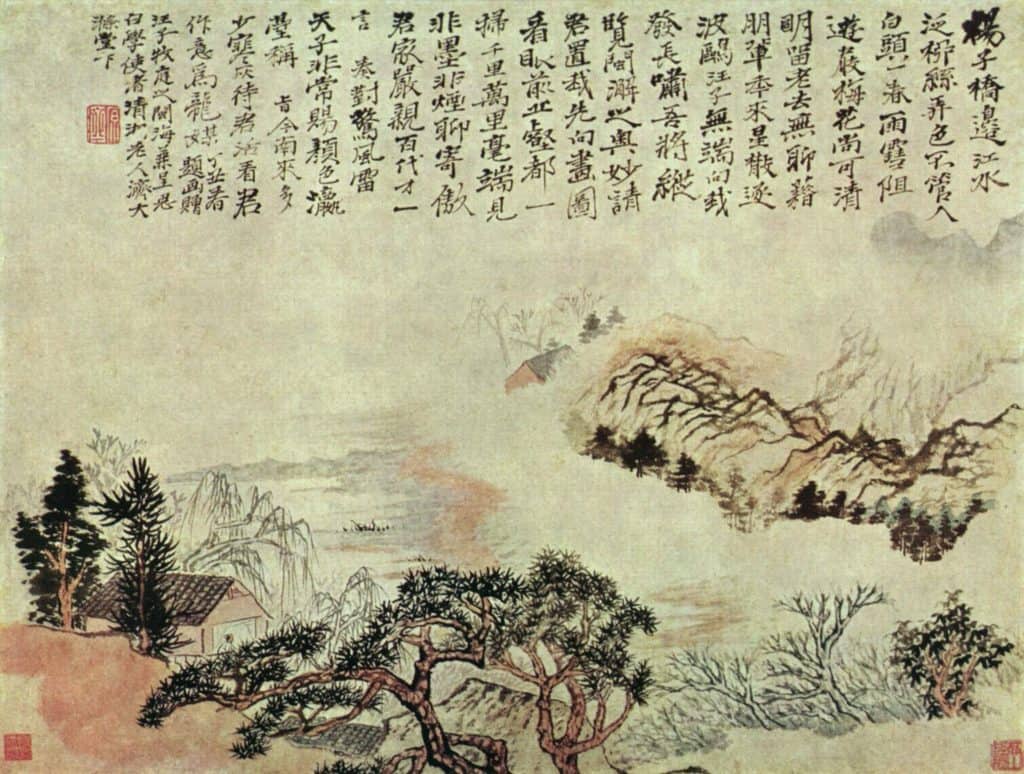 楊子橋邊江水
泛柳絲弄色不管人
白頭一春雨雪阻
遊屐梅花尚可清
明留老去無聊藉
朋輩本來星散逐
波鷗汪子無端向我
發長嘯吾將縱
覽開澥之興妙請
君置我先向畫圖
看眼前丘壑都一
掃千里萬里毫端見
非墨非煙聊寄傲
君家嚴親百代才一
言 奏對驚風雷
天子非常賜顏色瀛
臺稱 旨今南來多
少寒灰待君活看君
作意為龍媒
題畫贈
汪子牧庭之開海兼呈思
白學使者清湘老人濟大
滌堂下